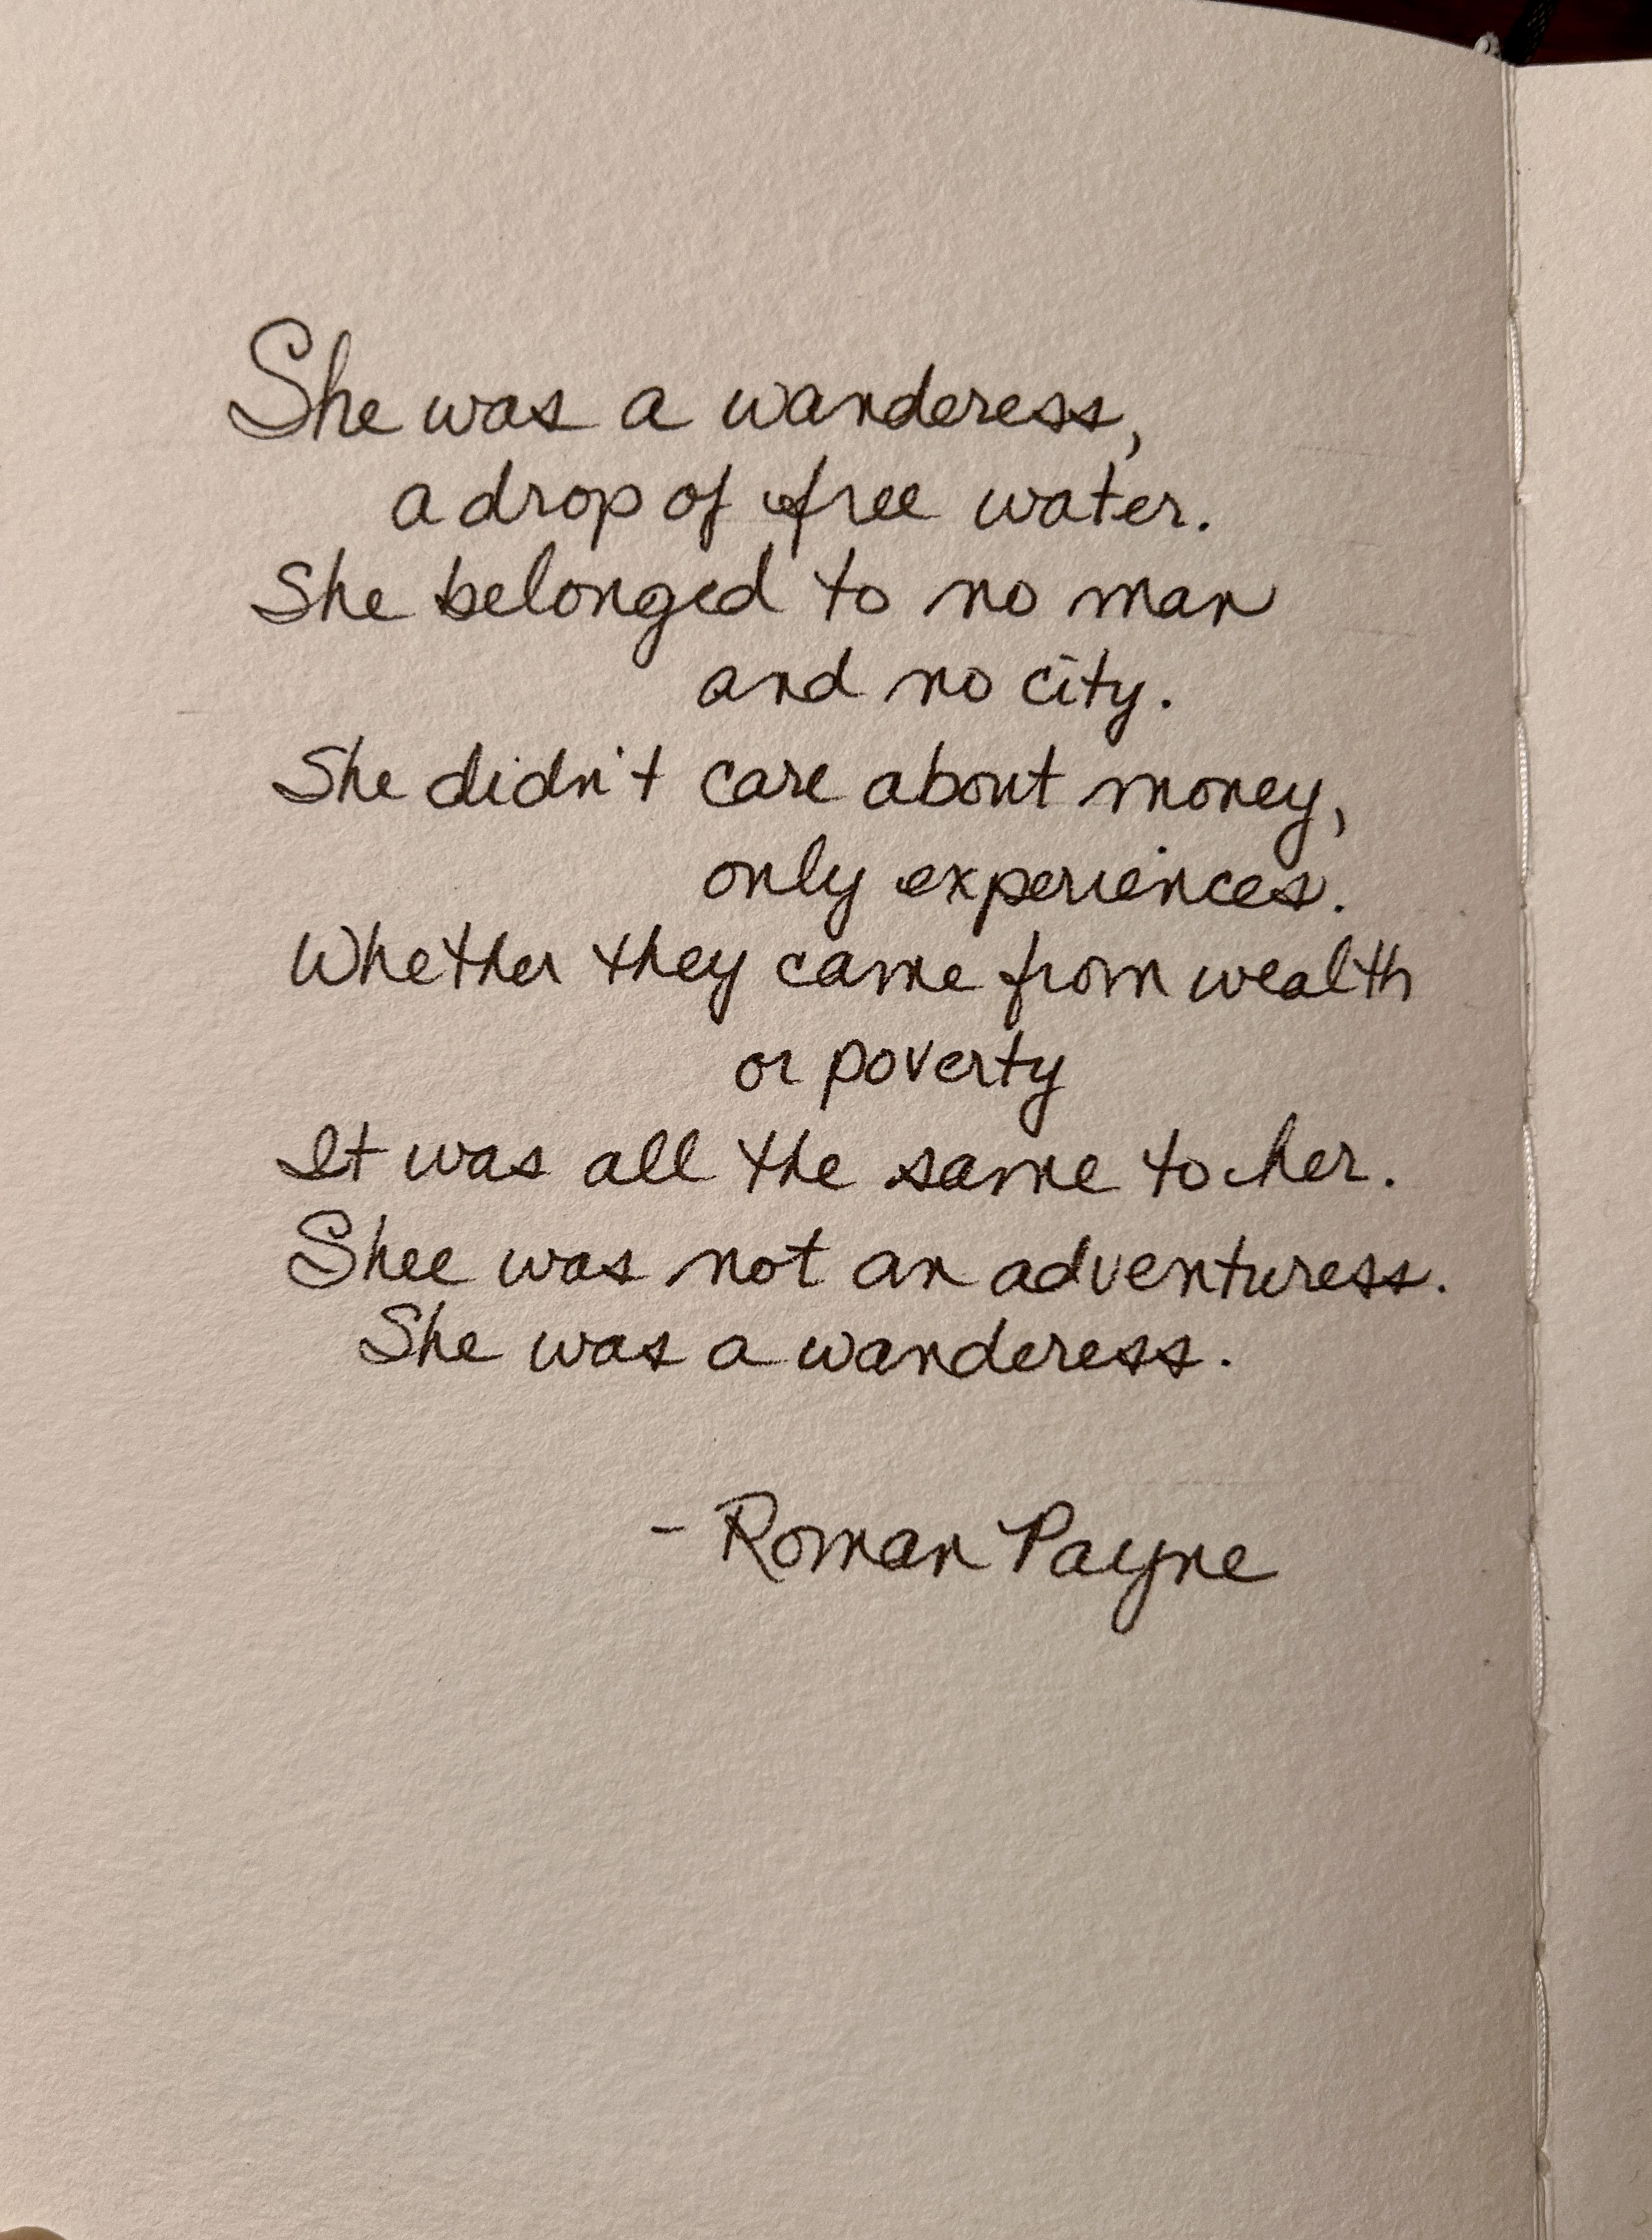 She was a wanderess,
a drop of free water.
She belonged to no man
and no city.
She didn't care about money,
only experiences.
Whether they came from wealth
or poverty
It was all the same to her.
Shee was not an adventuress.
She was a wanderess.
- Roman Payne